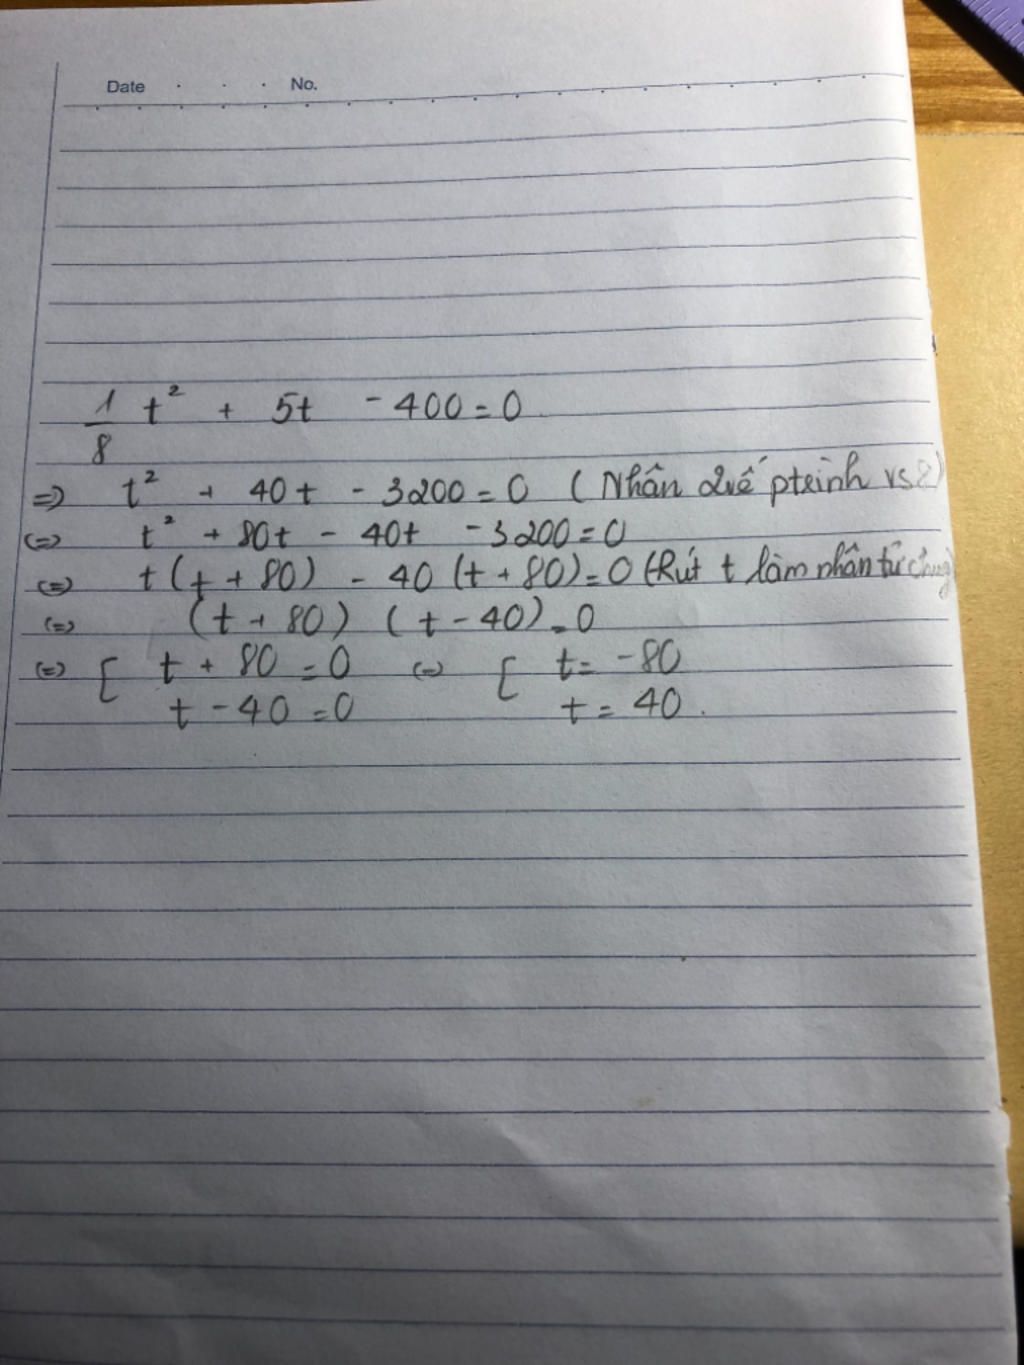 Date No.
1/8 t² + 5t - 400 = 0
=> t² + 40t - 3200 = 0 (Nhân 2 vế ptrình vs 8)
<=> t² + 80t - 40t - 3200 = 0
<=> t(t + 80) - 40(t + 80) = 0 (Rút t làm nhân tử chung)
<=> (t + 80) (t - 40) = 0
<=> [ t + 80 = 0 <=> [ t = -80
t - 40 = 0 t = 40.